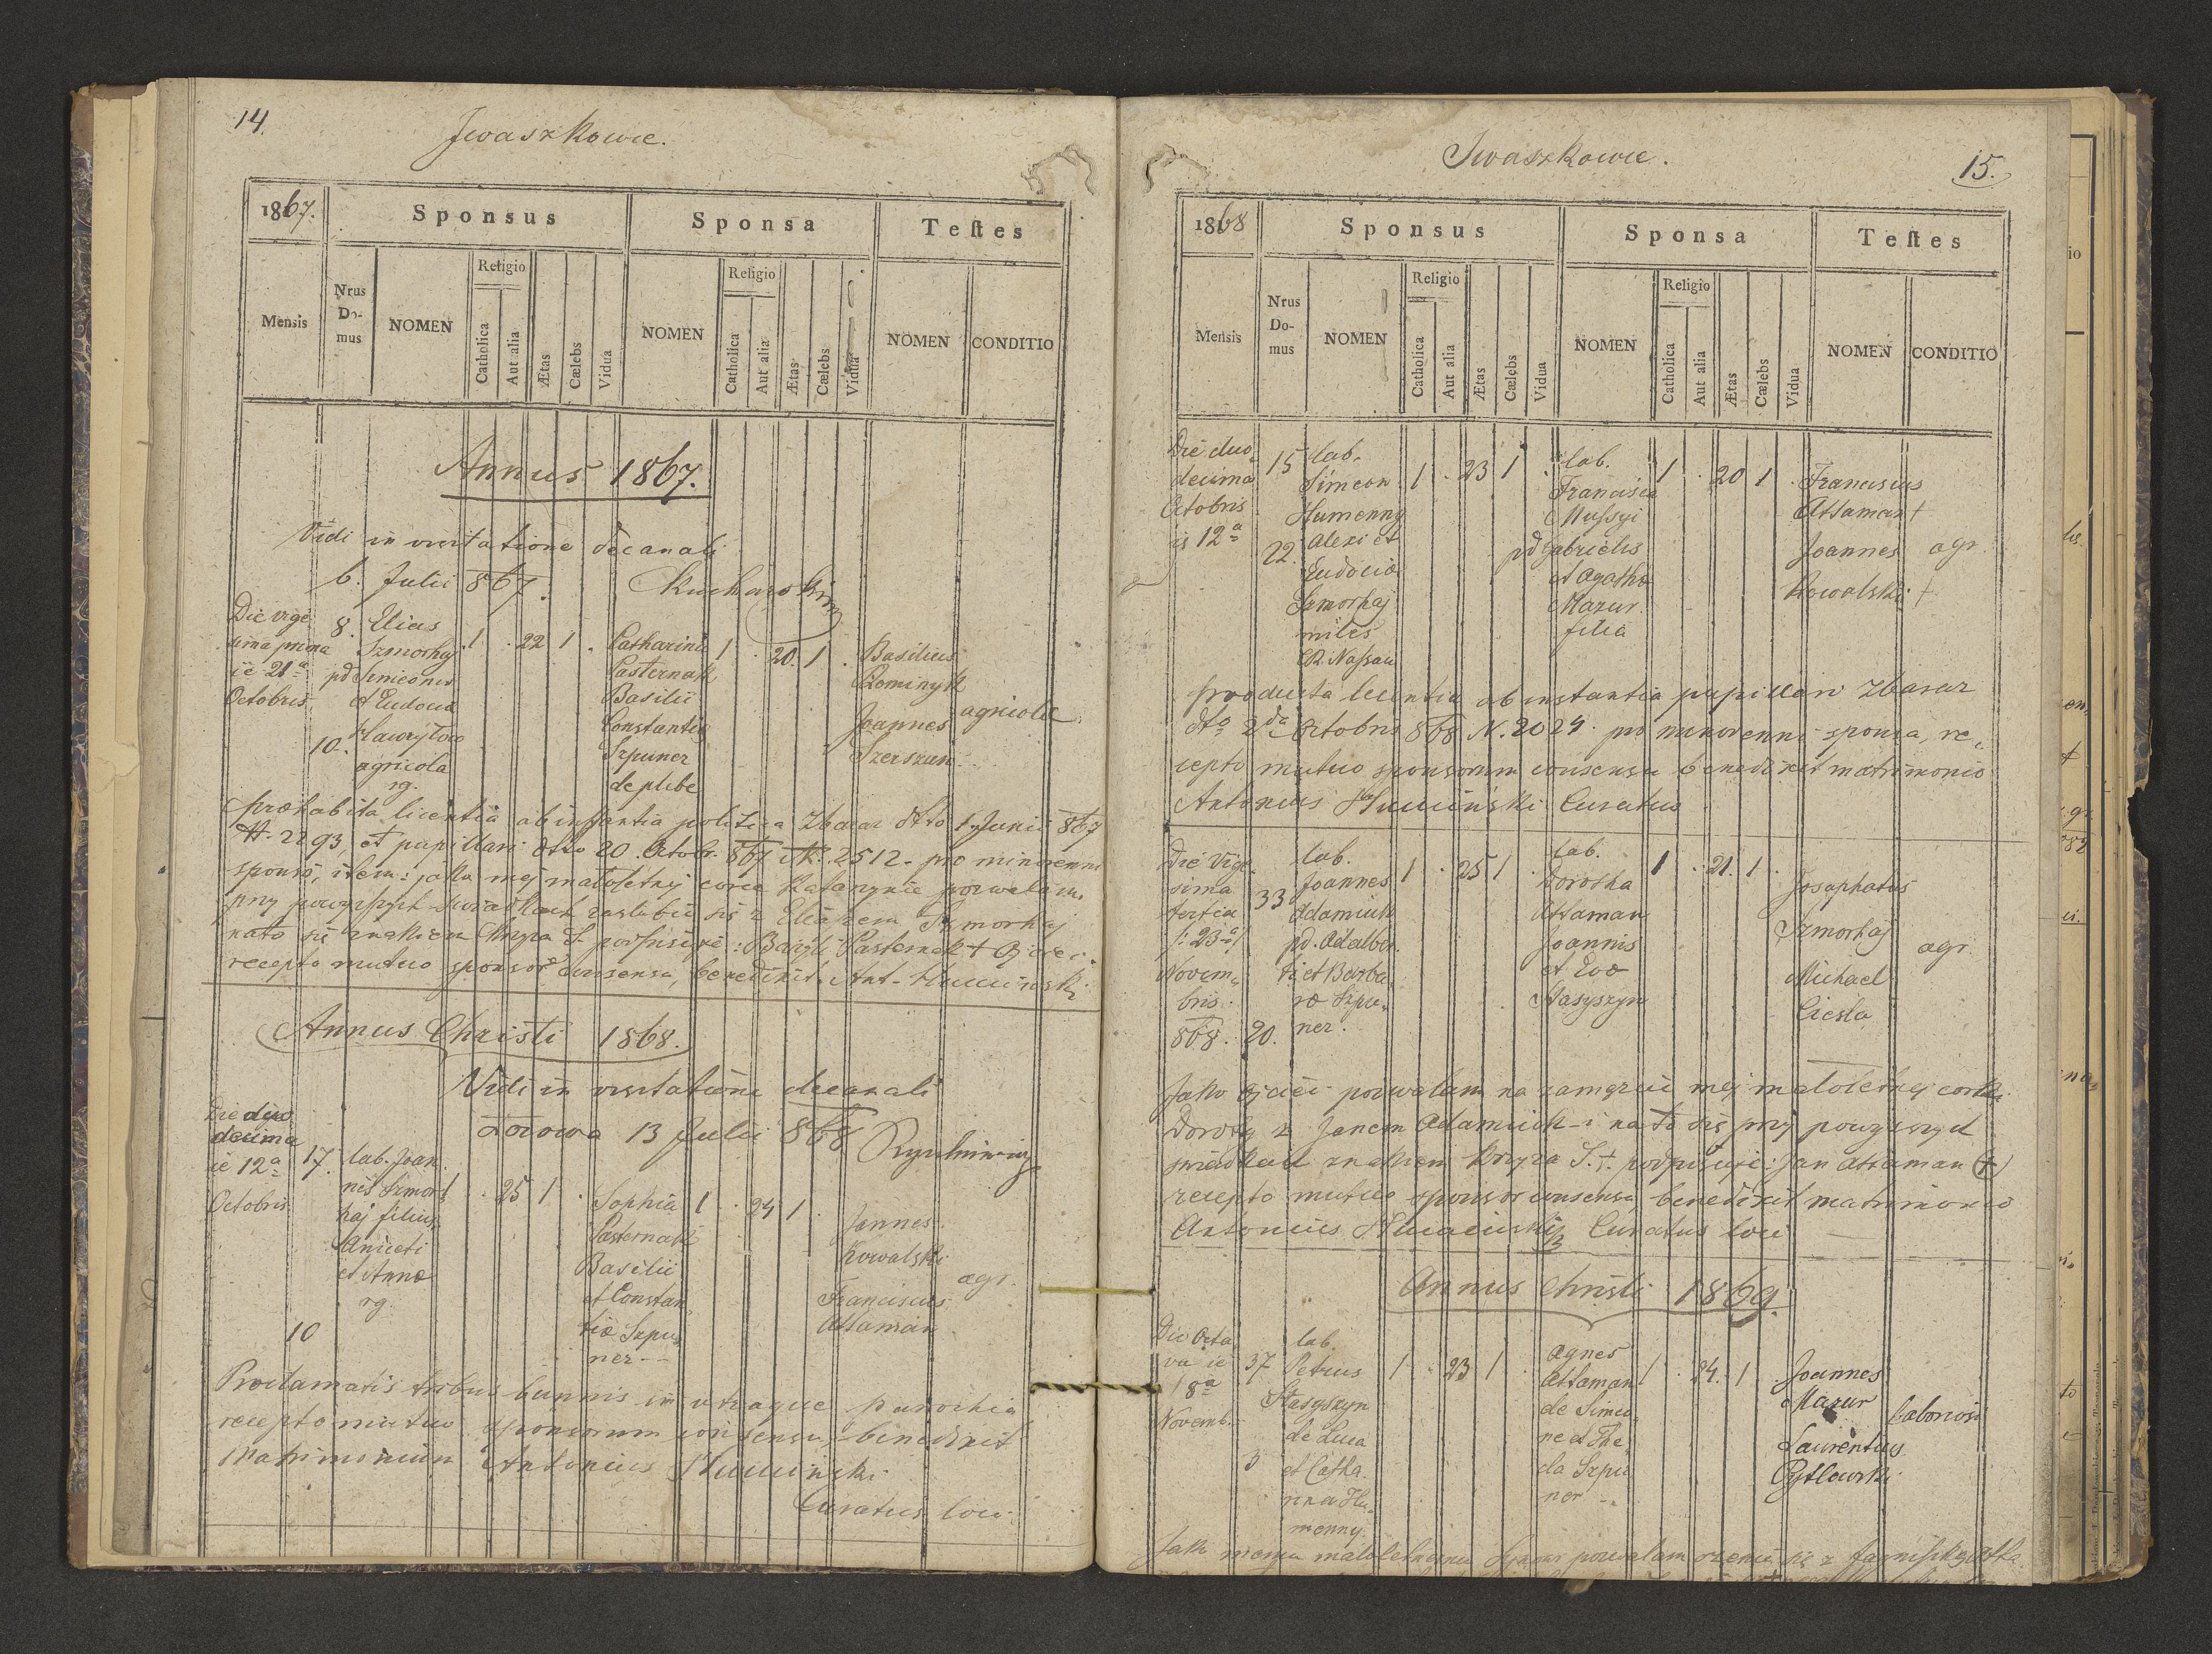 14.
Iwaszkowce.
1867.
Sponsus
Sponsa
Teſtes
Mensis
Nrus Do- mus
NOMEN
Religio
Catholica
Aut alia
Ætas
Cælebs
Vidua
NOMEN
Religio
Catholica
Aut alia
Ætas
Cælebs
Vidua
NOMEN
CONDITIO
Annus 1867.
Vidi in visitatione decanali
6. Julii 867.
Die vige
sima prima
ie 21a
Octobris
8.
10.
Elias
Szmorhaj
pd Simeonis
et Eudocia
agricola
rg.
1 . 22 1 .
Catharina
Pasternak
Basilii
Constantia
Szpuner
de plebe
1 . 20. 1 .
Basilius
Joannes
Szerszun
agricolæ
præhabita licentia ab instantia politica Zbaraz dtto 1 Junii 867
N. 2293, et pupillari dtto 20. Octob. 867 N. 2512 - pro minorenni
sponso, item: jako mej małoletniej corce Katarzynie pozwalam
przy powyższych świadkach zaslubić się z Eliaszem Szmorhaj
na to się znakiem krzyża S. podpisuje: Bazyli Pasternak + Ojciec.
recepto mutuo sponsor consensu, benedixit Ant.
Annus Christi 1868.
Vidi in visitatione decanali
13 Julii 868
Die duo
decima
ie 12a
Octobris
17.
10
lab. Joan
nes Szmor
haj filius
Aniceti
et Annæ
rg.
1 . 25 1 .
Sophia
Pasternak
Basilii
et Constan
tiæ Szpu
ner --
1 . 24 1 .
Joannes
Kowalski
Franciscus
Attaman
agr.
Proclamatis tribus bannis in utraque parochia
recepto mutuo sponsorum consensu, benedixit
Matrimonium Antonius
Curatus loci
Iwaszkowce.
15.
1868
Sponsus
Sponsa
Teſtes
Mensis
Nrus Do- mus
NOMEN
Religio
Catholica
Aut alia
Ætas
Cælebs
Vidua
NOMEN
Religio
Catholica
Aut alia
Ætas
Cælebs
Vidua
NOMEN
CONDITIO
Die duo
decima
Octobris
ie 12a
15
22.
lab.
Simeon
Humenny
Alexi et
Eudocia
Szmorhaj
miles
CR Nassau
1 . 23 1 .
lab.
Francisca
Mussyi
pd Gabrielis
et Agatha
Mazur.
filia
1 . 20 1 .
Franciscus
Attaman +
Joannes
Kowalski +
agr.
producta licentia ab instantia pupillari Zbaraz
dto 2da Octobris 868 N. 2024 pro minorenni sponsa, re
cepto mutuo sponsorum consensu benedixit matrimonio
Antonius Curatus
Die Vige
sima
tertia
/: 23a /
Novem
bris.
868.
33
20.
lab.
Joannes
Adamiuk
pd. Adalber
ti et Barba
ræ Szpu
ner.
1 . 25 1 .
lab.
Dorotha
Attaman
Joannis
et Evæ
Stasyszyn
1 . 21. 1 .
Josaphatus
Szmorhaj
Michael
Ciesla
agr.
Jako ojciec pozwalam na zamęzcie mej małoletniej corki
Doroty z Janem Adamiuk - i na to się przy powyższych
świadkach znakiem krzyża S.+. podpisuje: Jan Attaman (+)
recepto mutuo sponsor consensu, benedixit matrimonio
Antonius Curatus loci
Annus Christi 1869.
Die Octa
va ie
8a
Novemb.
37
3
lab.
Petrus
Stasyszyn
de Luca
et Catha
rina Hu
menny.
1 . 23 1 .
Agnes
Attaman
de Simeo
ne et The
cla Szpu
ner --
1 . 24. 1 .
Joannes
Mazur
Laurentius
Pytlowski
laboriosi